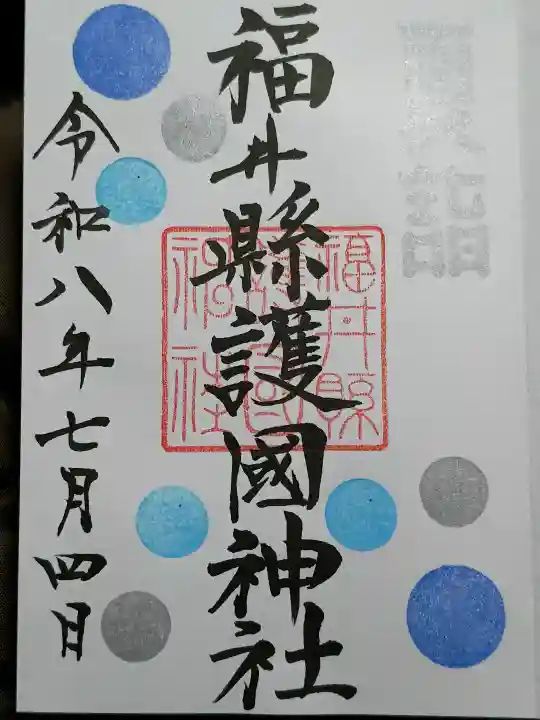 福井縣護國神社
福井縣
護國
神社
令和八年七月四日